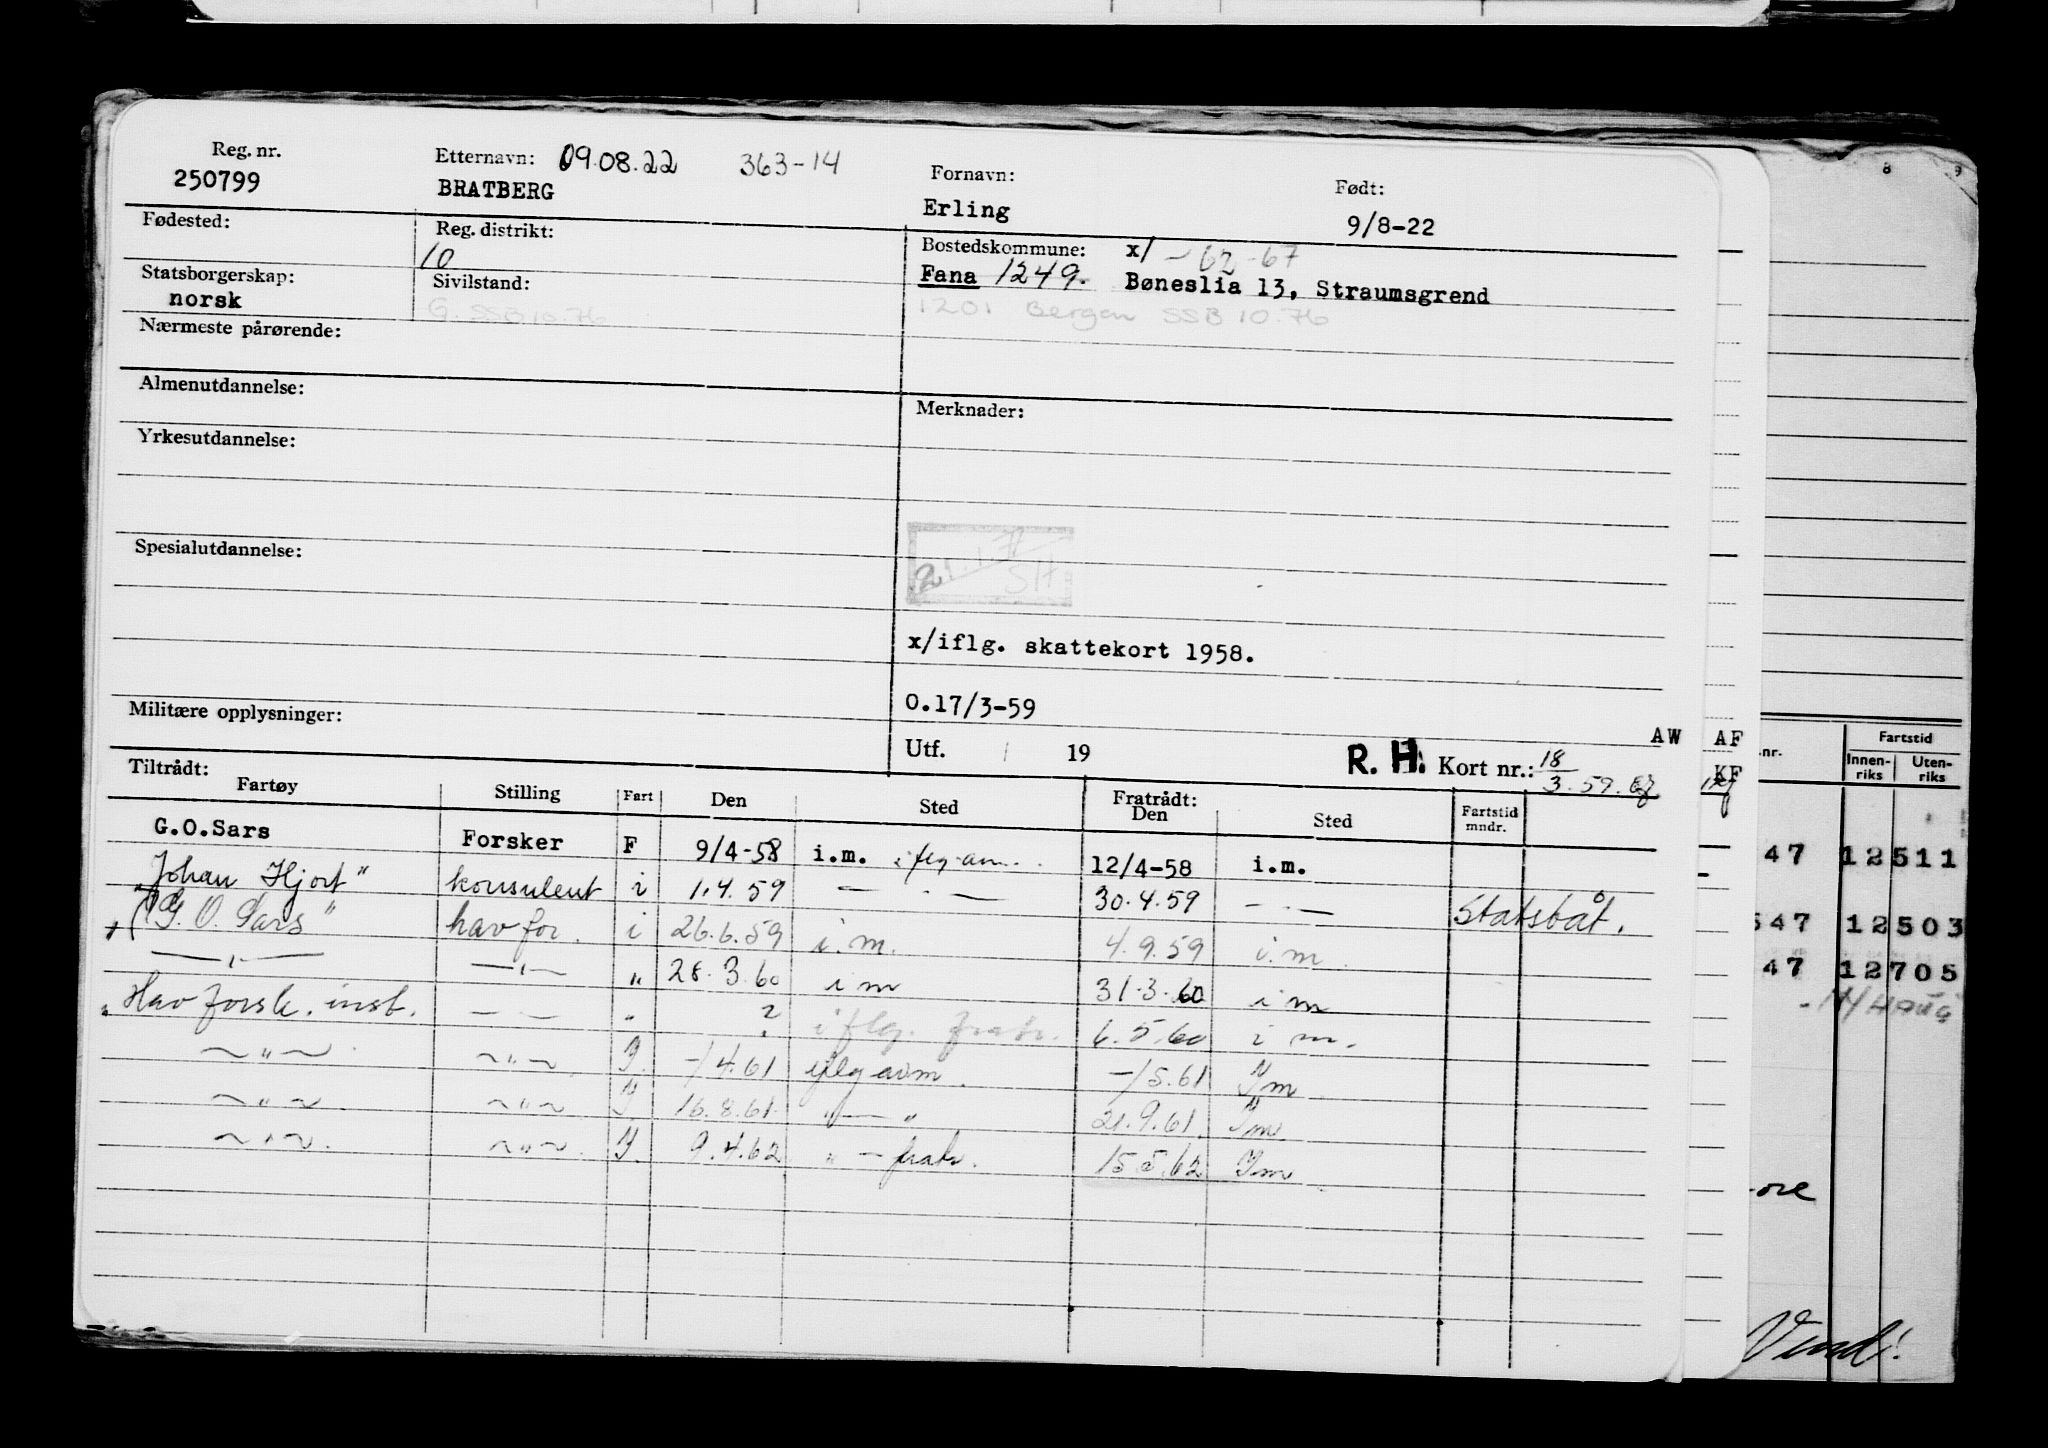 Reg. nr. Etternavn: 09.08.22 363-14 Fornavn: Født:
250799 BRATBERG Erling 9/8-22
Fødested: Reg. distrikt: Bostedskommune: x/ -62-67
10 Fana 1249. Bøneslia 13, Straumsgrend
Statsborgerskap: Sivilstand:
norsk G. SSB 10.76 1201 Bergen SSB 10.76
Nærmeste pårørende:
Almenutdannelse: Merknader:
Yrkesutdannelse:
Spesialutdannelse:
SH
x/iflg. skattekort 1958.
O.17/3-59
Militære opplysninger: Utf. 19 R. H. Kort nr.: 18/3.59.
AW AF
KF
Tiltrådt: Fratrådt:
Fartøy Stilling Fart Den Sted Den Sted Fartstid mndr.
G.O.Sars Forsker F 9/4-58 i.m. 12/4-58 i.m.
Johan Hjort" konsulent i 1.4.59 — · — 30.4.59 — · — Statsbåt.
G. O. Sars" havfor. i 26.6.59 i.m. 4.9.59 i.m.
—„— —„— „ 28.3.60 i m 31.3.60 i m
Havforsk. inst. — — „ ? iflg. fratr. 6.5.60 i m.
~„~ ~„~ I -/4.61 iflg avm. -/5.61 Im
~„~ ~„~ I 16.8.61 „—„ 21.9.61. Im
~„~ ~„~ I. 9.4.62 „ — fratr. 15.5.62 Im
8 9
nr. Fartstid
Innen-riks Uten-riks
47 12511
547 12503
47 12705
Vend!